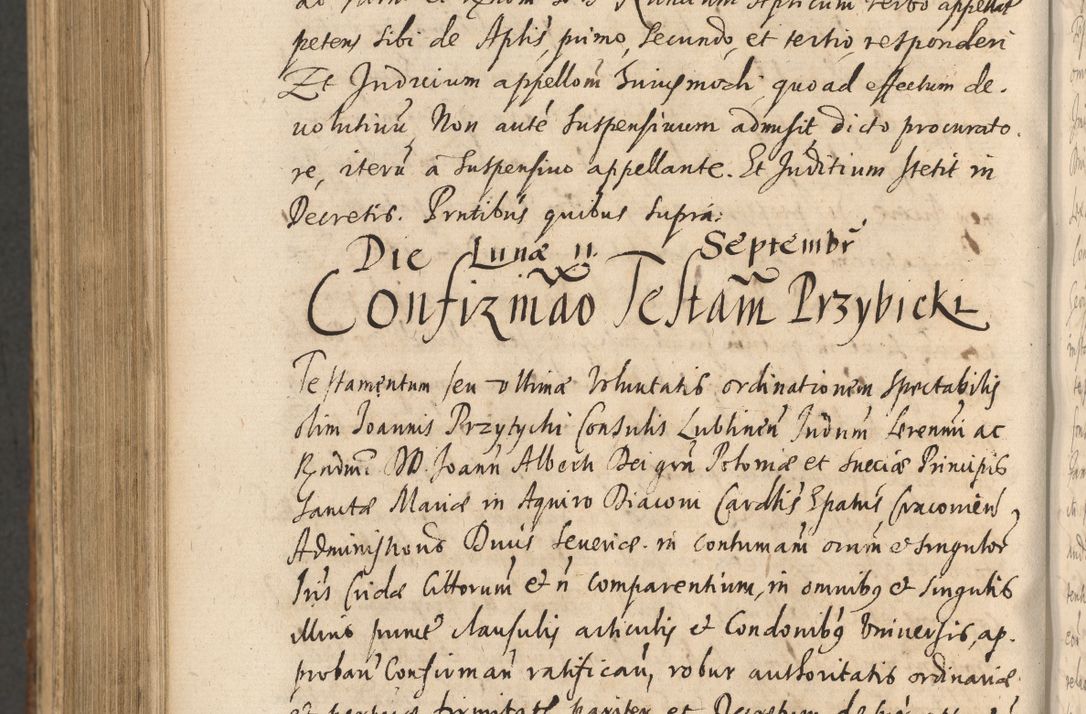 petens sibi de Aplis, primo, secundo, et tertio, responderi
Et Judicium appellom̃ huiusmodi quoad effectum de-
volutiuũ, Non autẽ suspensiuum admisit, dicto procurato-
re, iterũ a suspensiuo appellante. Et Juditium stetit in
Decretis. Prñtibus quibus supra.
Die Lunæ 11. Septembr̃
Confirm̃ao Testam̃ Przybicki
Testamentum seu vltimæ voluntatis ordinationem spectabilis
olim Joannis Przytycki Consulis Lublineñ Judum̃ Serenmi ac
Rñdmi DD. Joann Alberti Dei grã Poloniæ et Sueciæ Principis
Sanctæ Mariæ in Aquiro Diaconi Cardlis Epatus Cracovien̄,
Administions Ducis Severiæ. in contumam̃ oium̃ et singulor̃
Citatorum̃ et ñ comparentium, in omnibus et singulis
illius punct̃ clausulis articulis et Condonibus vniuersis, ap-
probañ Confirmañ ratificañ, robur authoritatis ordinariæ